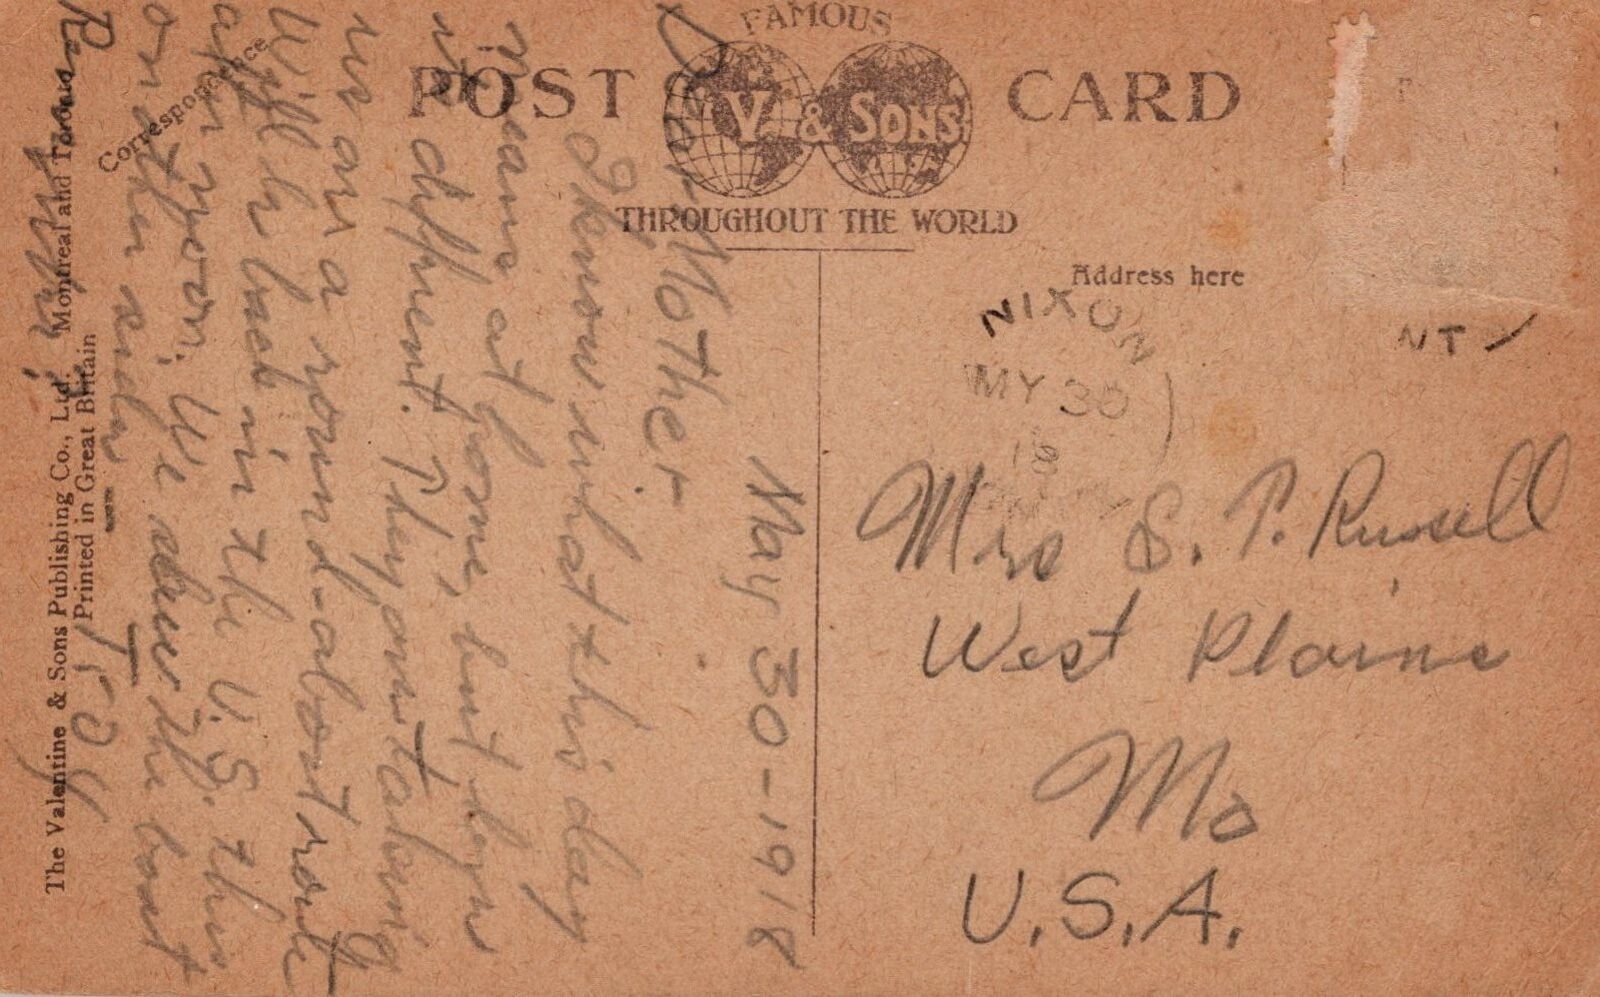 FAMOUS
POST CARD
V. & SONS
THROUGHOUT THE WORLD
Correspondence
Address here
NIXON
MY 30
18
NT
May 30-1918
Dear Mother
I know what this day
means at home, but here
its different. They are taking
us on a round-about route
Will be back in the U.S. this
afternoon. We saw the boat
on other side
Mrs S. P. Russell
West Plains
Mo
U.S.A.
The Valentine & Sons Publishing Co., Ltd. Montreal and Toronto
Printed in Great Britain